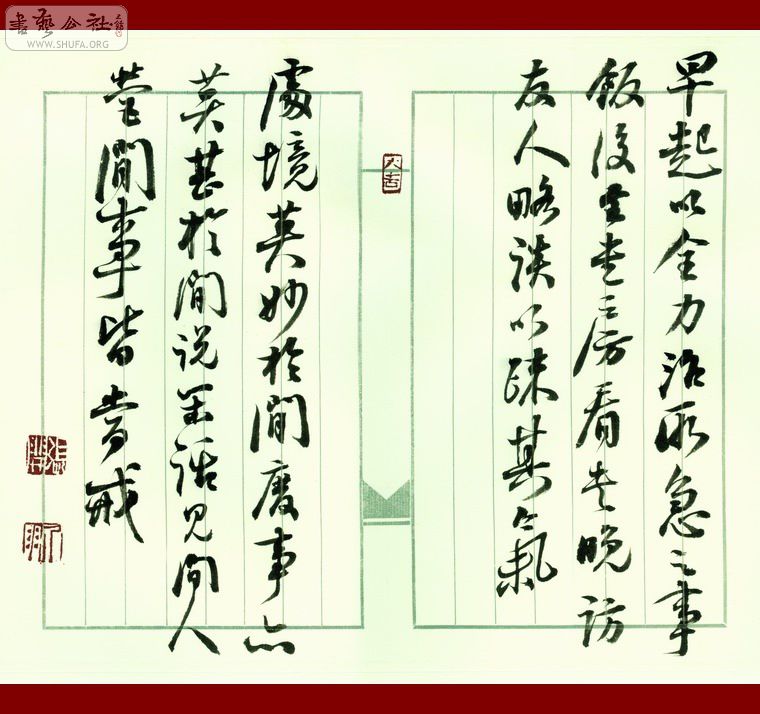 書藝公社
WWW.SHUFA.ORG
早起以全力治所急之事
飯後坐書房看書晚訪
友人略談以疎其氣
大吉
處境莫妙於閒廢事亦
莫甚於閒說閒話見閒人
管閒事皆當戒